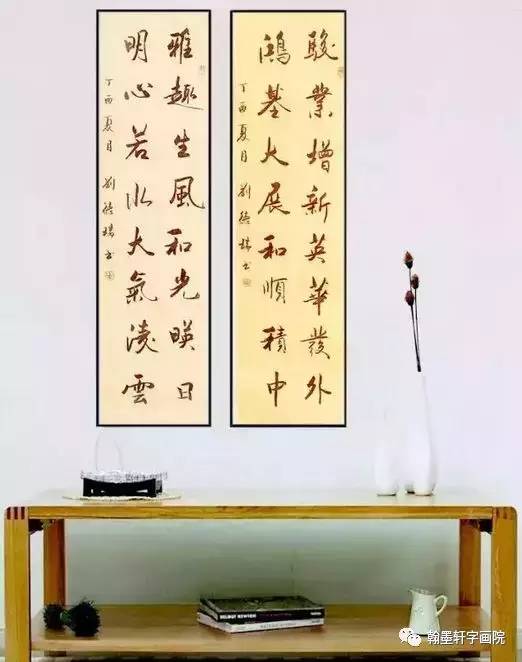 駿業增新英華發外
鴻基大展和順積中
丁酉夏月 劉 書
雅趣生風和光暎日
明心若水大氣淩雲
丁酉夏月 劉 書
HELMUT NEWTON
翰墨轩字画院